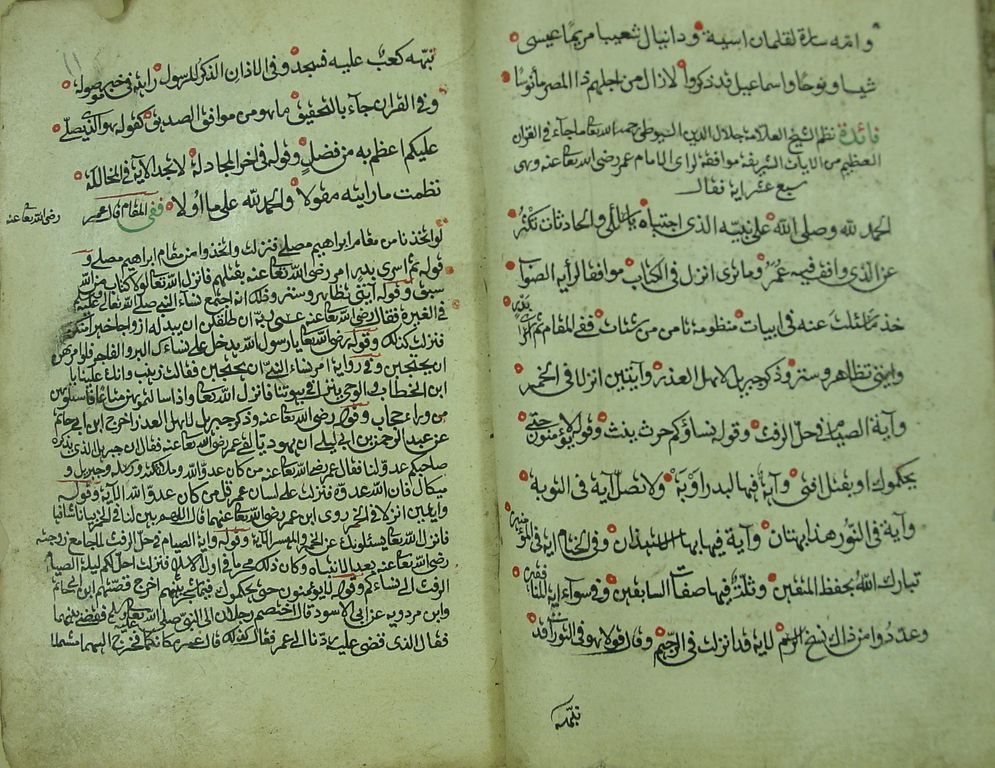 وامه سارة لقلمان اسية ودانيال شعيبا مريما عيسى
شيا ونوحا واسماعيل فذكروا لازال من اجلهم ذا المصر مأنوسا
فائدة نظم الشيخ العلامة جلال الدين السيوطي رحمه الله تعا ما جاء في القران
العظيم من الايات الشريفة موافقة لراى الامام عمر رضى الله تعا عنه وهى
سبع عشر اية فقال
الحمد لله وصلى الله على نبيه الذى اجتباه يا سائلى والحادثات تكثر
عن الذى وافق فيه عمر وما يرى انزل فى الكتاب موافقا لرأيه الصواب
خذ ما سئلت عنه فى ابيات منظومة تامن من شتات ففى المقام
وايتى تظاهر وستر وذكر جبريل لاهل الغدر وآيتين انزلا فى الخمر
وآية الصيام فى حل الرفث وقوله نساؤكم حرث يبث وقوله لا يؤمنون حتى
يحكموك اذ بقتل افتى وآية فيها لبدر اوبة ولا تصل آية فى التوبة
وآية فى النور هذا بهتان وآية فيها بها الاستيذان وفى ختام اية فى المؤمنين
تبارك الله بحفظ المتقين وثلة فيها صفات السابقين وفى سواء اية المنافقين
وعددوا من ذاك نسخ الرسم لاية قد انزلت فى الرجم وقال قولا هو فى التوراة قد
نبهه
نبهه كعب عليه فسجد وفى الاذان الذكر للرسول رايته فى خبر موصولا
وفى القران جآء بالتحقيق ما هو من موافق الصديق كقوله هو الذى يصلى
عليكم اعظم به من فضل وقوله فى اخر المجادلة لا تجد الاية فى المخاللة
نظمت ما رايته منقولا والحمد لله على ما اولا ففى المقام قال عمر
رضى الله تعا عنه
لو اتخذنا من مقام ابراهيم مصلى فنزلت واتخذوا من مقام ابراهيم مصلى و
قوله ثم اسرى بدر امر رضى الله تعا عنه بقتلهم فانزل الله تعا لولا كتاب من الله
سبق وقوله آيتى تظاهر وستر وذلك انه اجتمع نساء النبى صلى الله تعالى عليه
فى الغيرة فقال رضى الله تعا عنه عسى ربه ان طلقكن ان يبدله ازواجا خيرا منكن
فنزلت كذلك وقوله رضى الله تعا يا رسول الله يدخل على نساءك البر والفاجر فلو امرتهن
ان يحتجبن وفى رواية امر نساء النبى ان يحتجبن فقالت زينب وانك علينا يا
ابن الخطاب والوحى ينزل فى بيوتنا فانزل الله تعا واذا سالتموهن متاعا فاسئلوهن
من وراء حجاب وقوله رضى الله تعا عنه وذكر جبريل لاهل الغدر اخرج ابن ابى حاتم
عن عبد الرحمن بن ابى ليلى ان يهوديا لقى عمر رضى الله تعا عنه فقال ان جبريل الذى يذكره
صاحبكم عدو لنا فقال عمر رضى الله تعا عنه من كان عدو الله وملائكته ورسله وجبريل و
ميكال فان الله عدوه فنزلت على لسان عمر قل من كان عدو الله الآية وقوله
وايتين انزلا فى الخمر روى ابن عمر رضى الله تعا عنهما قال اللهم بين لنا فى الخمر بيانا شافيا
فانزل الله تعا يسئلونك عن الخمر والميسر الآية وقوله وآية الصيام فى حل الرفث لما جامع زوجته
رضى الله تعا عنه بعد الانتباه وكان ذلك محرما فى اول الاسلام فنزلت احل لكم ليلة الصيام
الرفث الى نساءكم وقوله لا يؤمنون حتى يحكموك فيما شجر بينهم اخرج قصتهم ابن ابى حاتم
وابن مردويه عن ابى الاسود قال اختصم رجلان الى النبى صلى الله تعا عليه فقضى بينهما
فقال الذى قضى عليه ردنا الى عمر فقال كذلك قال عمر مكانكما فخرج اليهما مشتملا